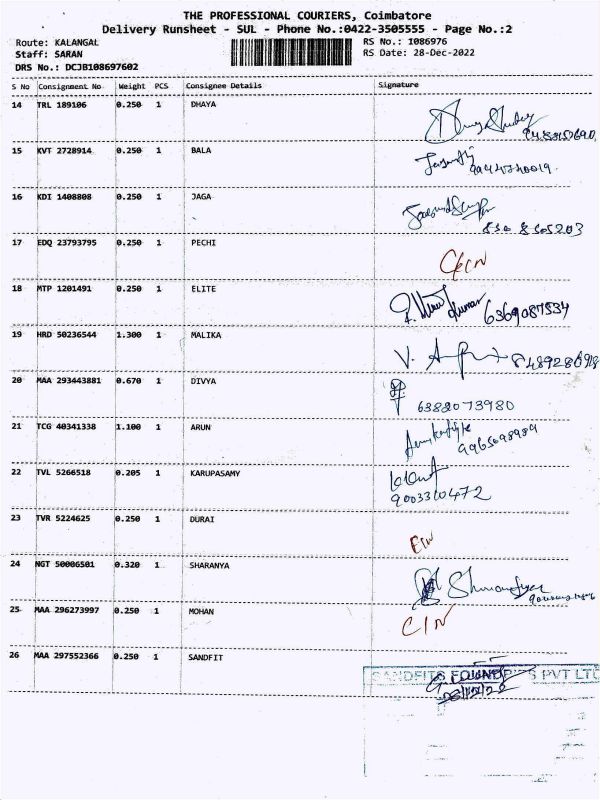 THE PROFESSIONAL COURIERS, Coimbatore
Delivery Runsheet - SUL - Phone No.:0422-3505555 - Page No.:2
Route: KALANGAL
RS No.: 1086976
Staff: SARAN
RS Date: 28-Dec-2022
DRS No.: DCJB108697602
S No Consignment No Weight PCS Consignee Details Signature
14 TRL 189106 0.250 1 DHAYA
15 KVT 2728914 0.250 1 BALA
16 KDI 1408808 0.250 1 JAGA
17 EDQ 23793795 0.250 1 PECHI
18 MTP 1201491 0.250 1 ELITE
6369087534
19 HRD 50236544 1.300 1 MALIKA
20 MAA 293443881 0.670 1 DIVYA
6388073980
21 TCG 40341338 1.100 1 ARUN
9965098989
22 TVL 5266518 0.205 1 KARUPASAMY
9003310472
23 TVR 5224625 0.250 1 DURAI
24 NGT 50006501 0.320 1 SHARANYA
25 MAA 296273997 0.250 1 MOHAN
CIN
26 MAA 297552366 0.250 1 SANDFIT
SANDFITS FOUNDRIES PVT LTD